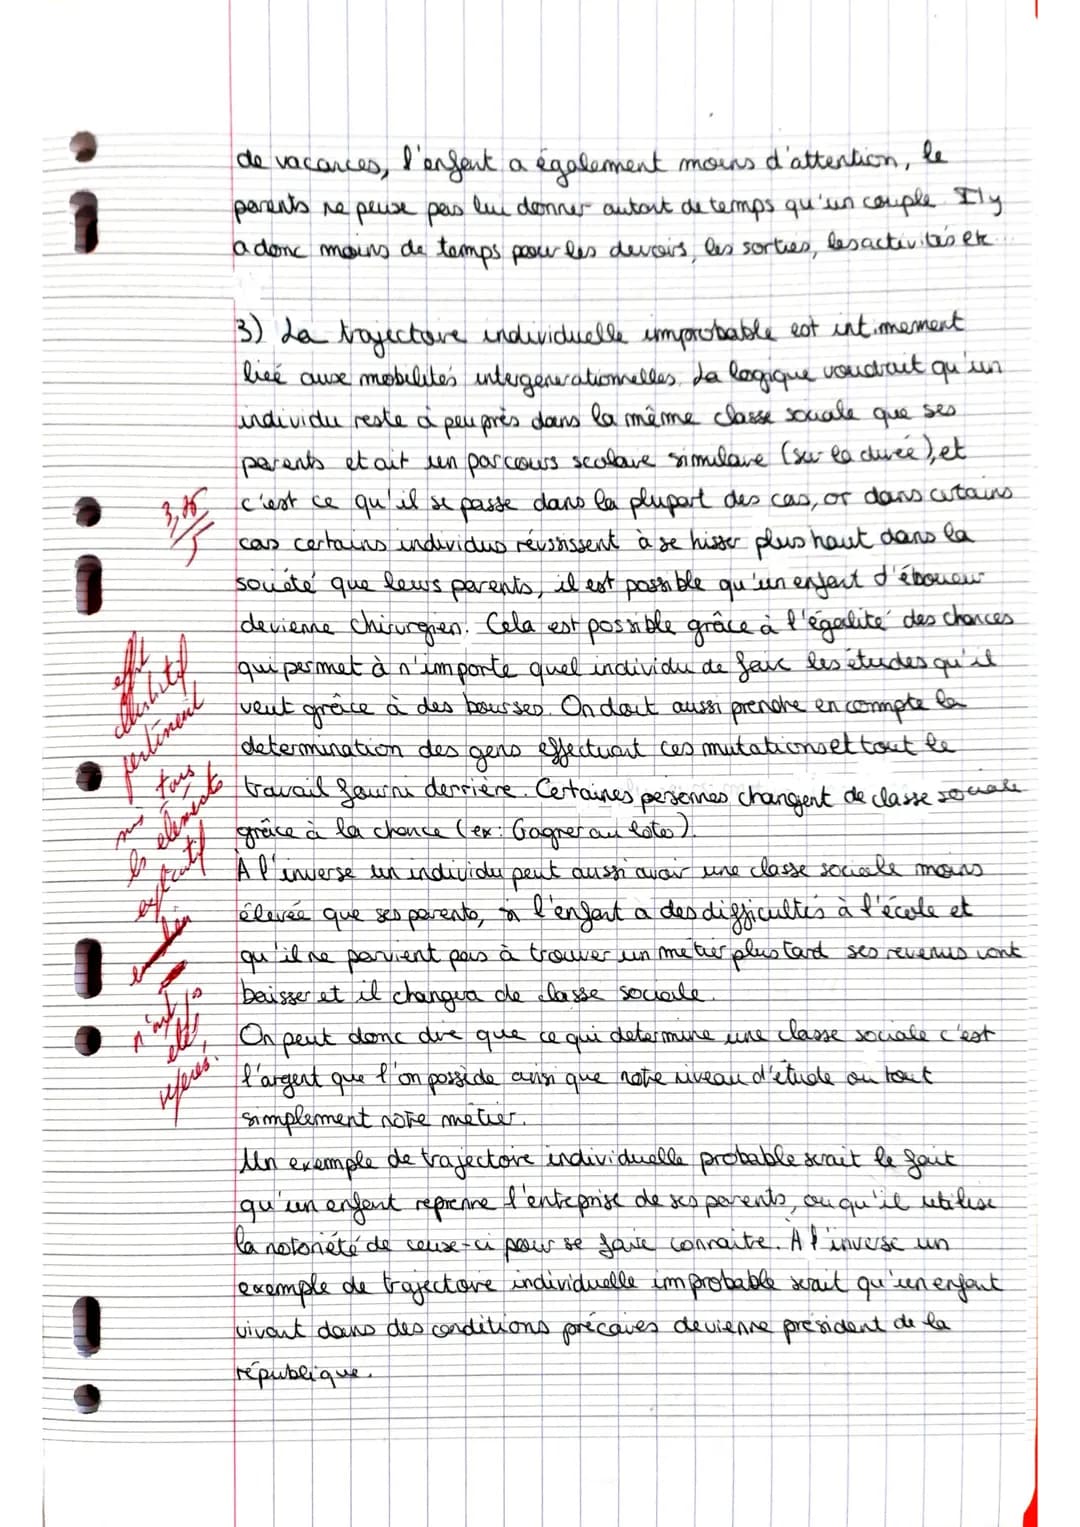 de vacances, l'enfant a également moins d'attention, le
parents ne peuse pas lui donner autant de temps qu'un couple. Il y
a donc moins de temps pour les devoirs, les sorties, les activités etc...
3) La trajectoire individuelle improbable est intimement
liée aux mobilités intergenerationnelles. La logique voudrait qu'un
individu reste à peu près dans la même classe sociale que ses
parents et ait un parcours scolaire similaire (sur la durée), et
c'est ce qu'il se passe dans la plupart des cas, or dans certains
3,75/5
cas certains individus réussissent à se hisser plus haut dans la
société que leurs parents, il est possible qu'un enfant d'éboueur
devienne chirurgien. Cela est possible grâce à l'égalité des chances
qui permet à n'importe quel individu de faire les études qu'il
veut grâce à des bourses. On doit aussi prendre en compte la
determination des gens effectuant ces mutations et tout le
travail fourni derrière. Certaines personnes changent de classe sociale
grâce à la chance (ex: Gagner au loto).
À l'inverse un individu peut aussi avoir une classe sociale moins
élevée que ses parents, si l'enfant a des difficultés à l'école et
qu'il ne parvient pas à trouver un métier plus tard ses revenus vont
baisser et il changera de classe sociale.
On peut donc dire que ce qui determine une classe sociale c'est
l'argent que l'on possède ainsi que notre niveau d'étude ou tout
simplement notre métier.
Un exemple de trajectoire individuelle probable serait le fait
qu'un enfant reprenne l'enteprise de ses parents, ou qu'il utilise
la notoriété de ceux-ci pour se faire connaitre. À l'inverse un
exemple de trajectoire individuelle improbable serait qu'un enfant
vivant dans des conditions précaires devienne président de la
république.
effort
illustratif
pertinent
mais tous
les éléments
explicatif
n'ont pas
été
repérés.